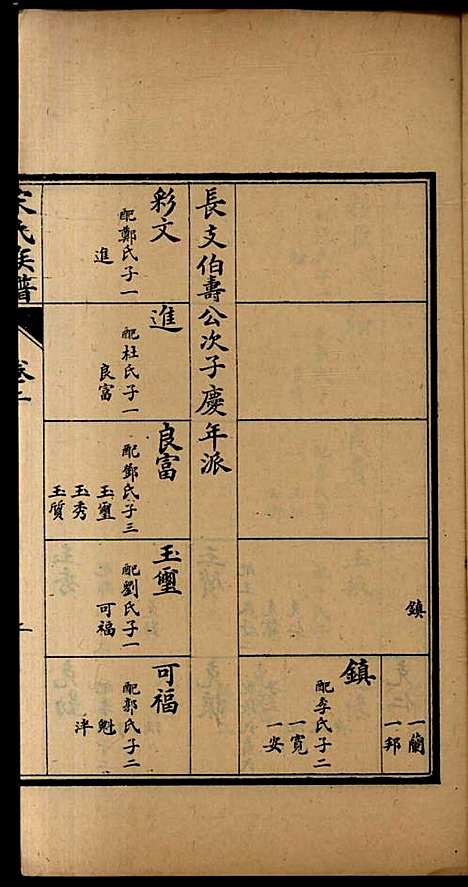 鎮
一蘭
一邦
鎮
配李氏子二
一寬
一安
長支伯壽公次子慶年派
彩文
配鄭氏子一
進
進
配杜氏子一
良富
良富
配鄧氏子三
玉璽
玉秀
玉質
玉璽
配劉氏子一
可福
可福
配郭氏子二
魁
泮
氏族譜
卷二